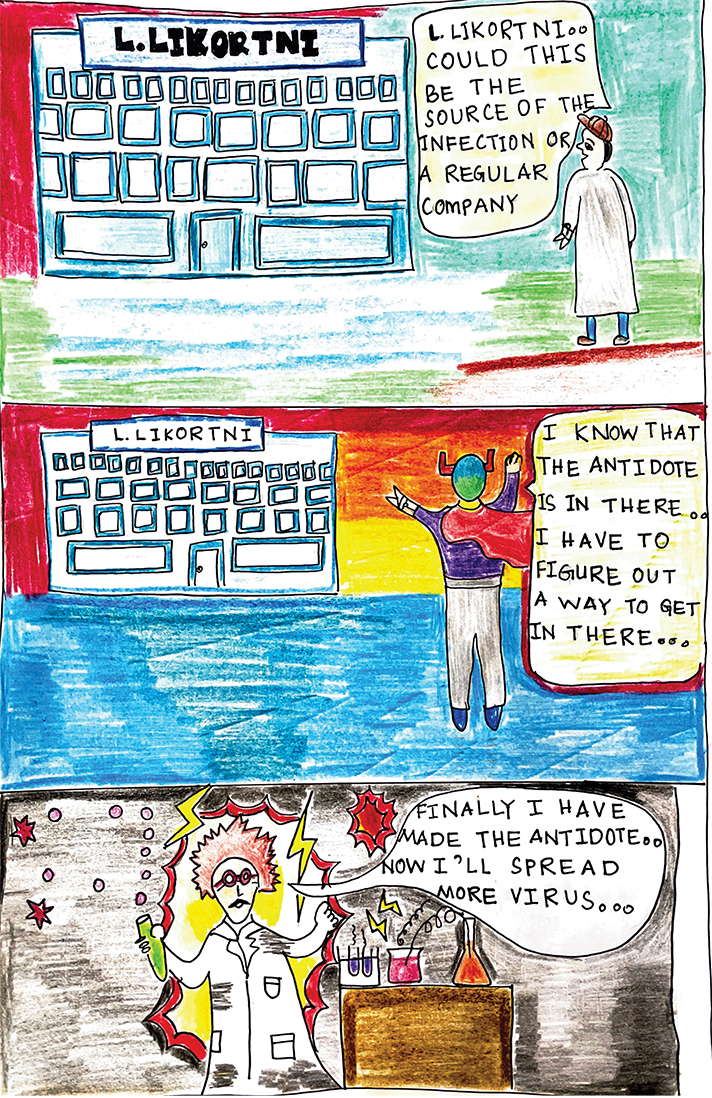 L.LIKORTNI
L.LIKORTNI..
COULD THIS
BE THE
SOURCE OF THE
INFECTION OR
A REGULAR
COMPANY
L. LIKORTNI
I KNOW THAT
THE ANTIDOTE
IS IN THERE..
I HAVE TO
FIGURE OUT
A WAY TO GET
IN THERE...
FINALLY I HAVE
MADE THE ANTIDOTE..
NOW I'LL SPREAD
MORE VIRUS...